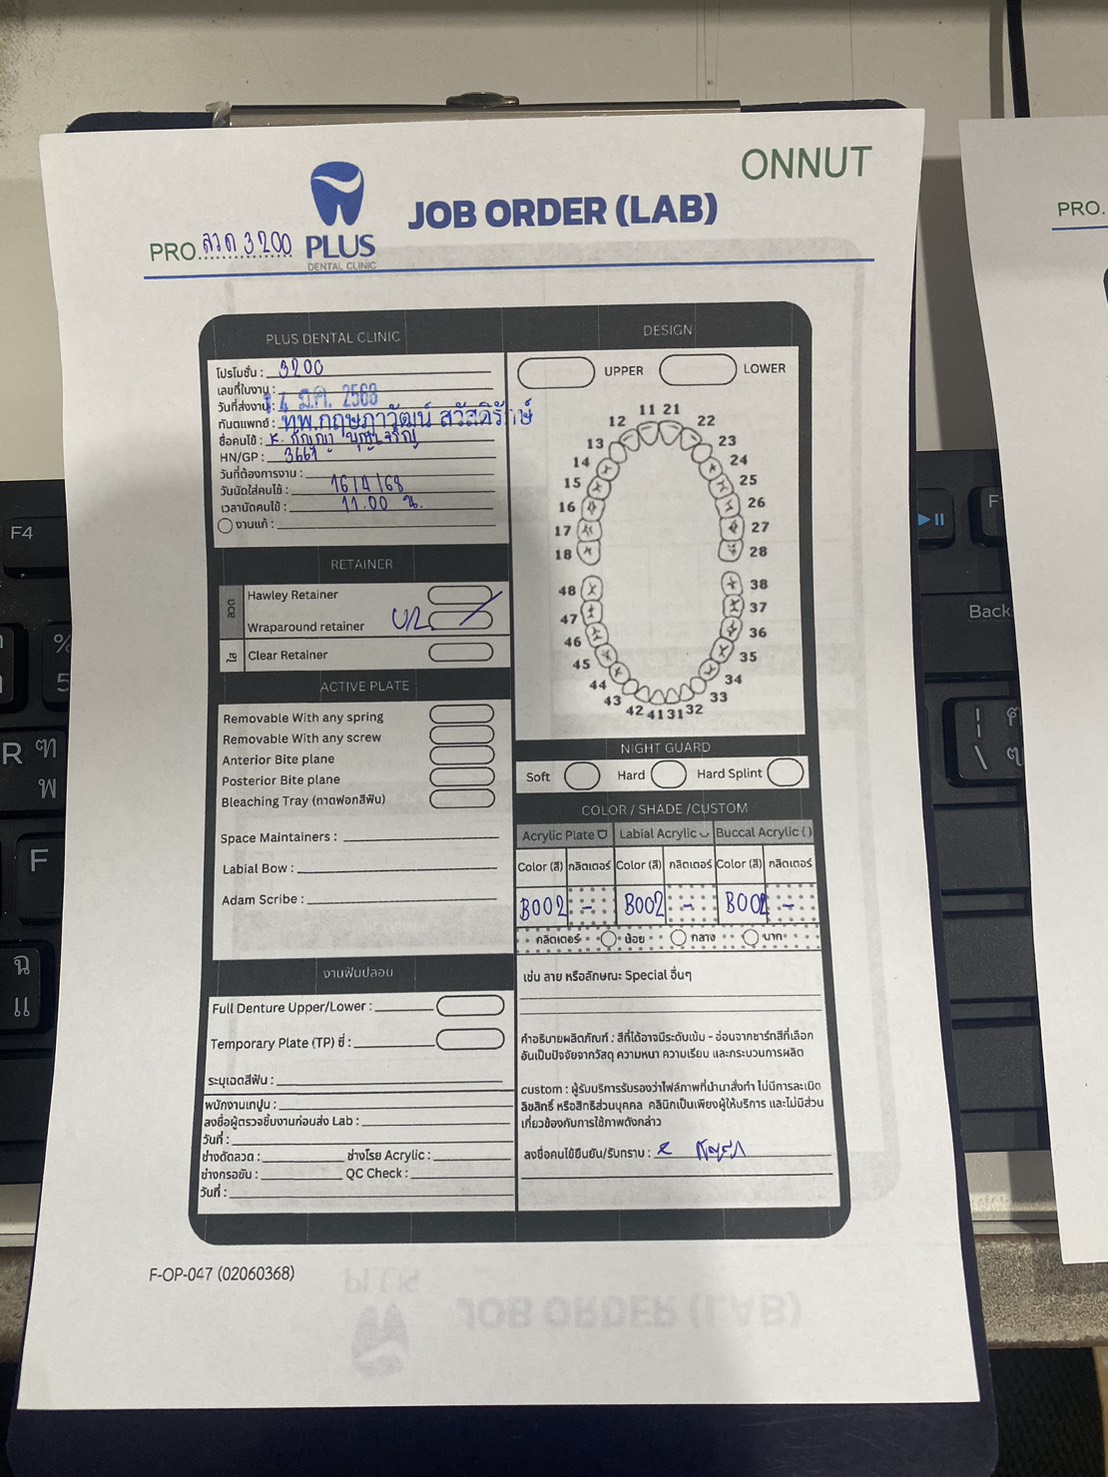 ONNUT
PLUS
DENTAL CLINIC
JOB ORDER (LAB)
PRO. ลวด 3200
PLUS DENTAL CLINIC
โปรโมชั่น : 3200
เลขที่ใบงาน :
วันที่ส่งงาน : 14 มี.ค. 2568
ทันตแพทย์ : ทพ.กฤษภาวัฒน์ สวัสดิรักษ์
ชื่อคนไข้ : K. กัญญา
HN/GP : 3661
วันที่ต้องการงาน :
วันนัดใส่คนไข้ : 16/4/68
เวลานัดคนไข้ : 11.00 น.
งานแก้ :
RETAINER
ลวด
Hawley Retainer
Wraparound retainer U/L
ใส
Clear Retainer
ACTIVE PLATE
Removable With any spring
Removable With any screw
Anterior Bite plane
Posterior Bite plane
Bleaching Tray (ถาดฟอกสีฟัน)
Space Maintainers :
Labial Bow :
Adam Scribe :
งานฟันปลอม
Full Denture Upper/Lower :
Temporary Plate (TP) ซี่ :
ระบุเฉดสีฟัน :
พนักงานเทปูน :
ลงชื่อผู้ตรวจชิ้นงานก่อนส่ง Lab :
วันที่ :
ช่างดัดลวด : ช่างโรย Acrylic :
ช่างกรอขัน : QC Check :
วันที่ :
DESIGN
UPPER LOWER
11 21
12 22
13 23
14 24
15 25
16 26
17 27
18 28
48 38
47 37
46 36
45 35
44 34
43 33
42 41 31 32
NIGHT GUARD
Soft Hard Hard Splint
COLOR / SHADE /CUSTOM
Acrylic Plate Labial Acrylic Buccal Acrylic ()
Color (สี) กลิตเตอร์ Color (สี) กลิตเตอร์ Color (สี) กลิตเตอร์
B002 - B002 - B002 -
กลิตเตอร์ น้อย กลาง มาก
เช่น ลาย หรือลักษณะ Special อื่นๆ
คำอธิบายผลิตภัณฑ์ : สีที่ได้อาจมีระดับเข้ม - อ่อนจากชาร์ทสีที่เลือก
อันเป็นปัจจัยจากวัสดุ ความหนา ความเรียบ และกระบวนการผลิต
custom : ผู้รับบริการรับรองว่าไฟล์ภาพที่นำมาสั่งทำ ไม่มีการละเมิด
ลิขสิทธิ์ หรือสิทธิส่วนบุคคล คลินิกเป็นเพียงผู้ให้บริการ และไม่มีส่วน
เกี่ยวข้องกับการใช้ภาพดังกล่าว
ลงชื่อคนไข้ยืนยัน/รับทราบ :
F-OP-047 (02060368)
PRO.
F4
Back
F
R
5
%
พ
ฉ
แ